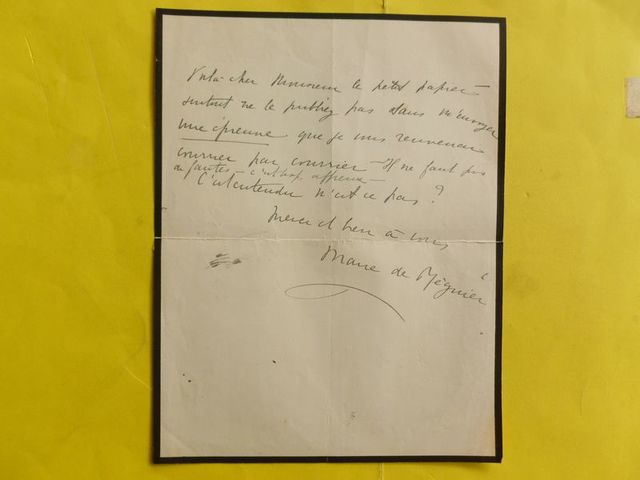 Voilà cher Monsieur le petit papier —
surtout ne le publiez pas sans m'envoyer
une épreuve que je vous renverrai
courrier par courrier — Il ne faut pas
de fautes — c'est trop affreux —
C'est entendu n'est ce pas ?
Merci et bien à vous
Marie de Régnier